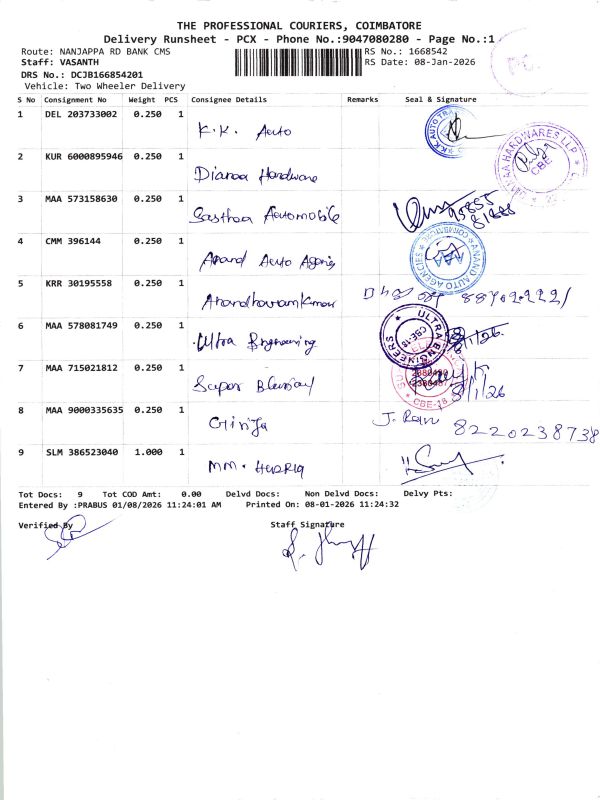 THE PROFESSIONAL COURIERS, COIMBATORE
Delivery Runsheet - PCX - Phone No.:9047080280 - Page No.:1
Route: NANJAPPA RD BANK CMS RS No.: 1668542
Staff: VASANTH RS Date: 08-Jan-2026
DRS No.: DCJB166854201
Vehicle: Two Wheeler Delivery
S No Consignment No Weight PCS Consignee Details Remarks Seal & Signature
1 DEL 203733002 0.250 1 K.K. Auto
2 KUR 6000895946 0.250 1 Hardware
HARDWARES LLP
CBE
3 MAA 573158630 0.250 1 Sasthaa Automobile
4 CMM 396144 0.250 1 Anand Auto
ANAND AUTO AGENCIES COIMBATORE
5 KRR 30195558 0.250 1
6 MAA 578081749 0.250 1 Ultra Engineering
ULTRA ENGINEERS
CBE-18
8/1/26
7 MAA 715021812 0.250 1 Super
8/1/26
CBE-18
8 MAA 9000335635 0.250 1 Girija J. Ram
8220238738
9 SLM 386523040 1.000 1 MM.
Tot Docs: 9 Tot COD Amt: 0.00 Delvd Docs: Non Delvd Docs: Delvy Pts:
Entered By :PRABUS 01/08/2026 11:24:01 AM Printed On: 08-01-2026 11:24:32
Verified By Staff Signature